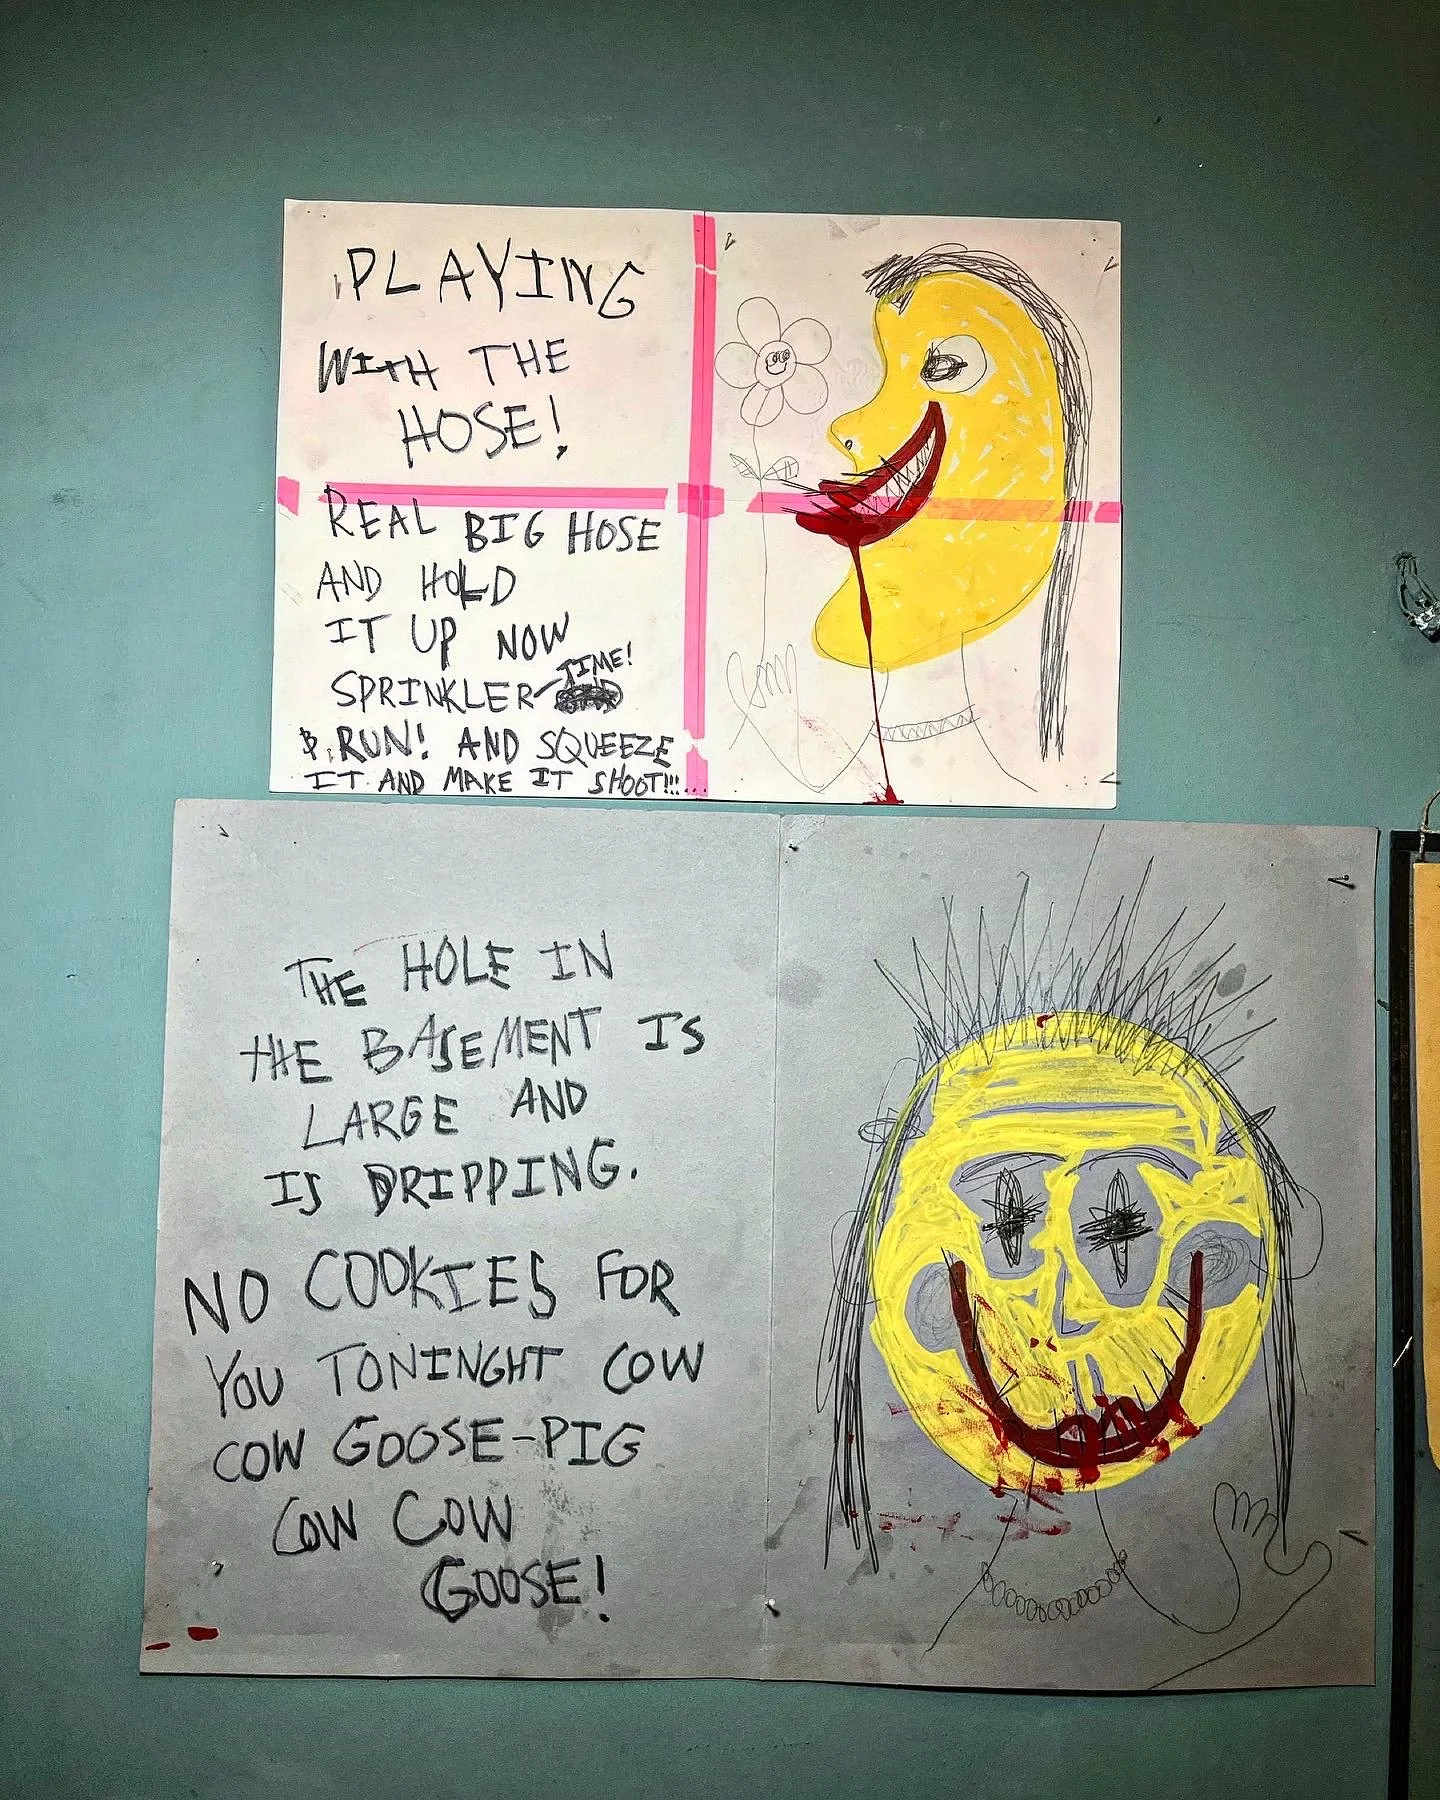 PLAYING
WITH THE
HOSE!
REAL BIG HOSE
AND HOLD
IT UP NOW
TIME!
SPRINKLER
RUN! AND SQUEEZE
IT AND MAKE IT SHOOT!!!...
THE HOLE IN
THE BASEMENT IS
LARGE AND
IS DRIPPING.
NO COOKIES FOR
YOU TONINGHT COW
COW GOOSE-PIG
COW COW
GOOSE!